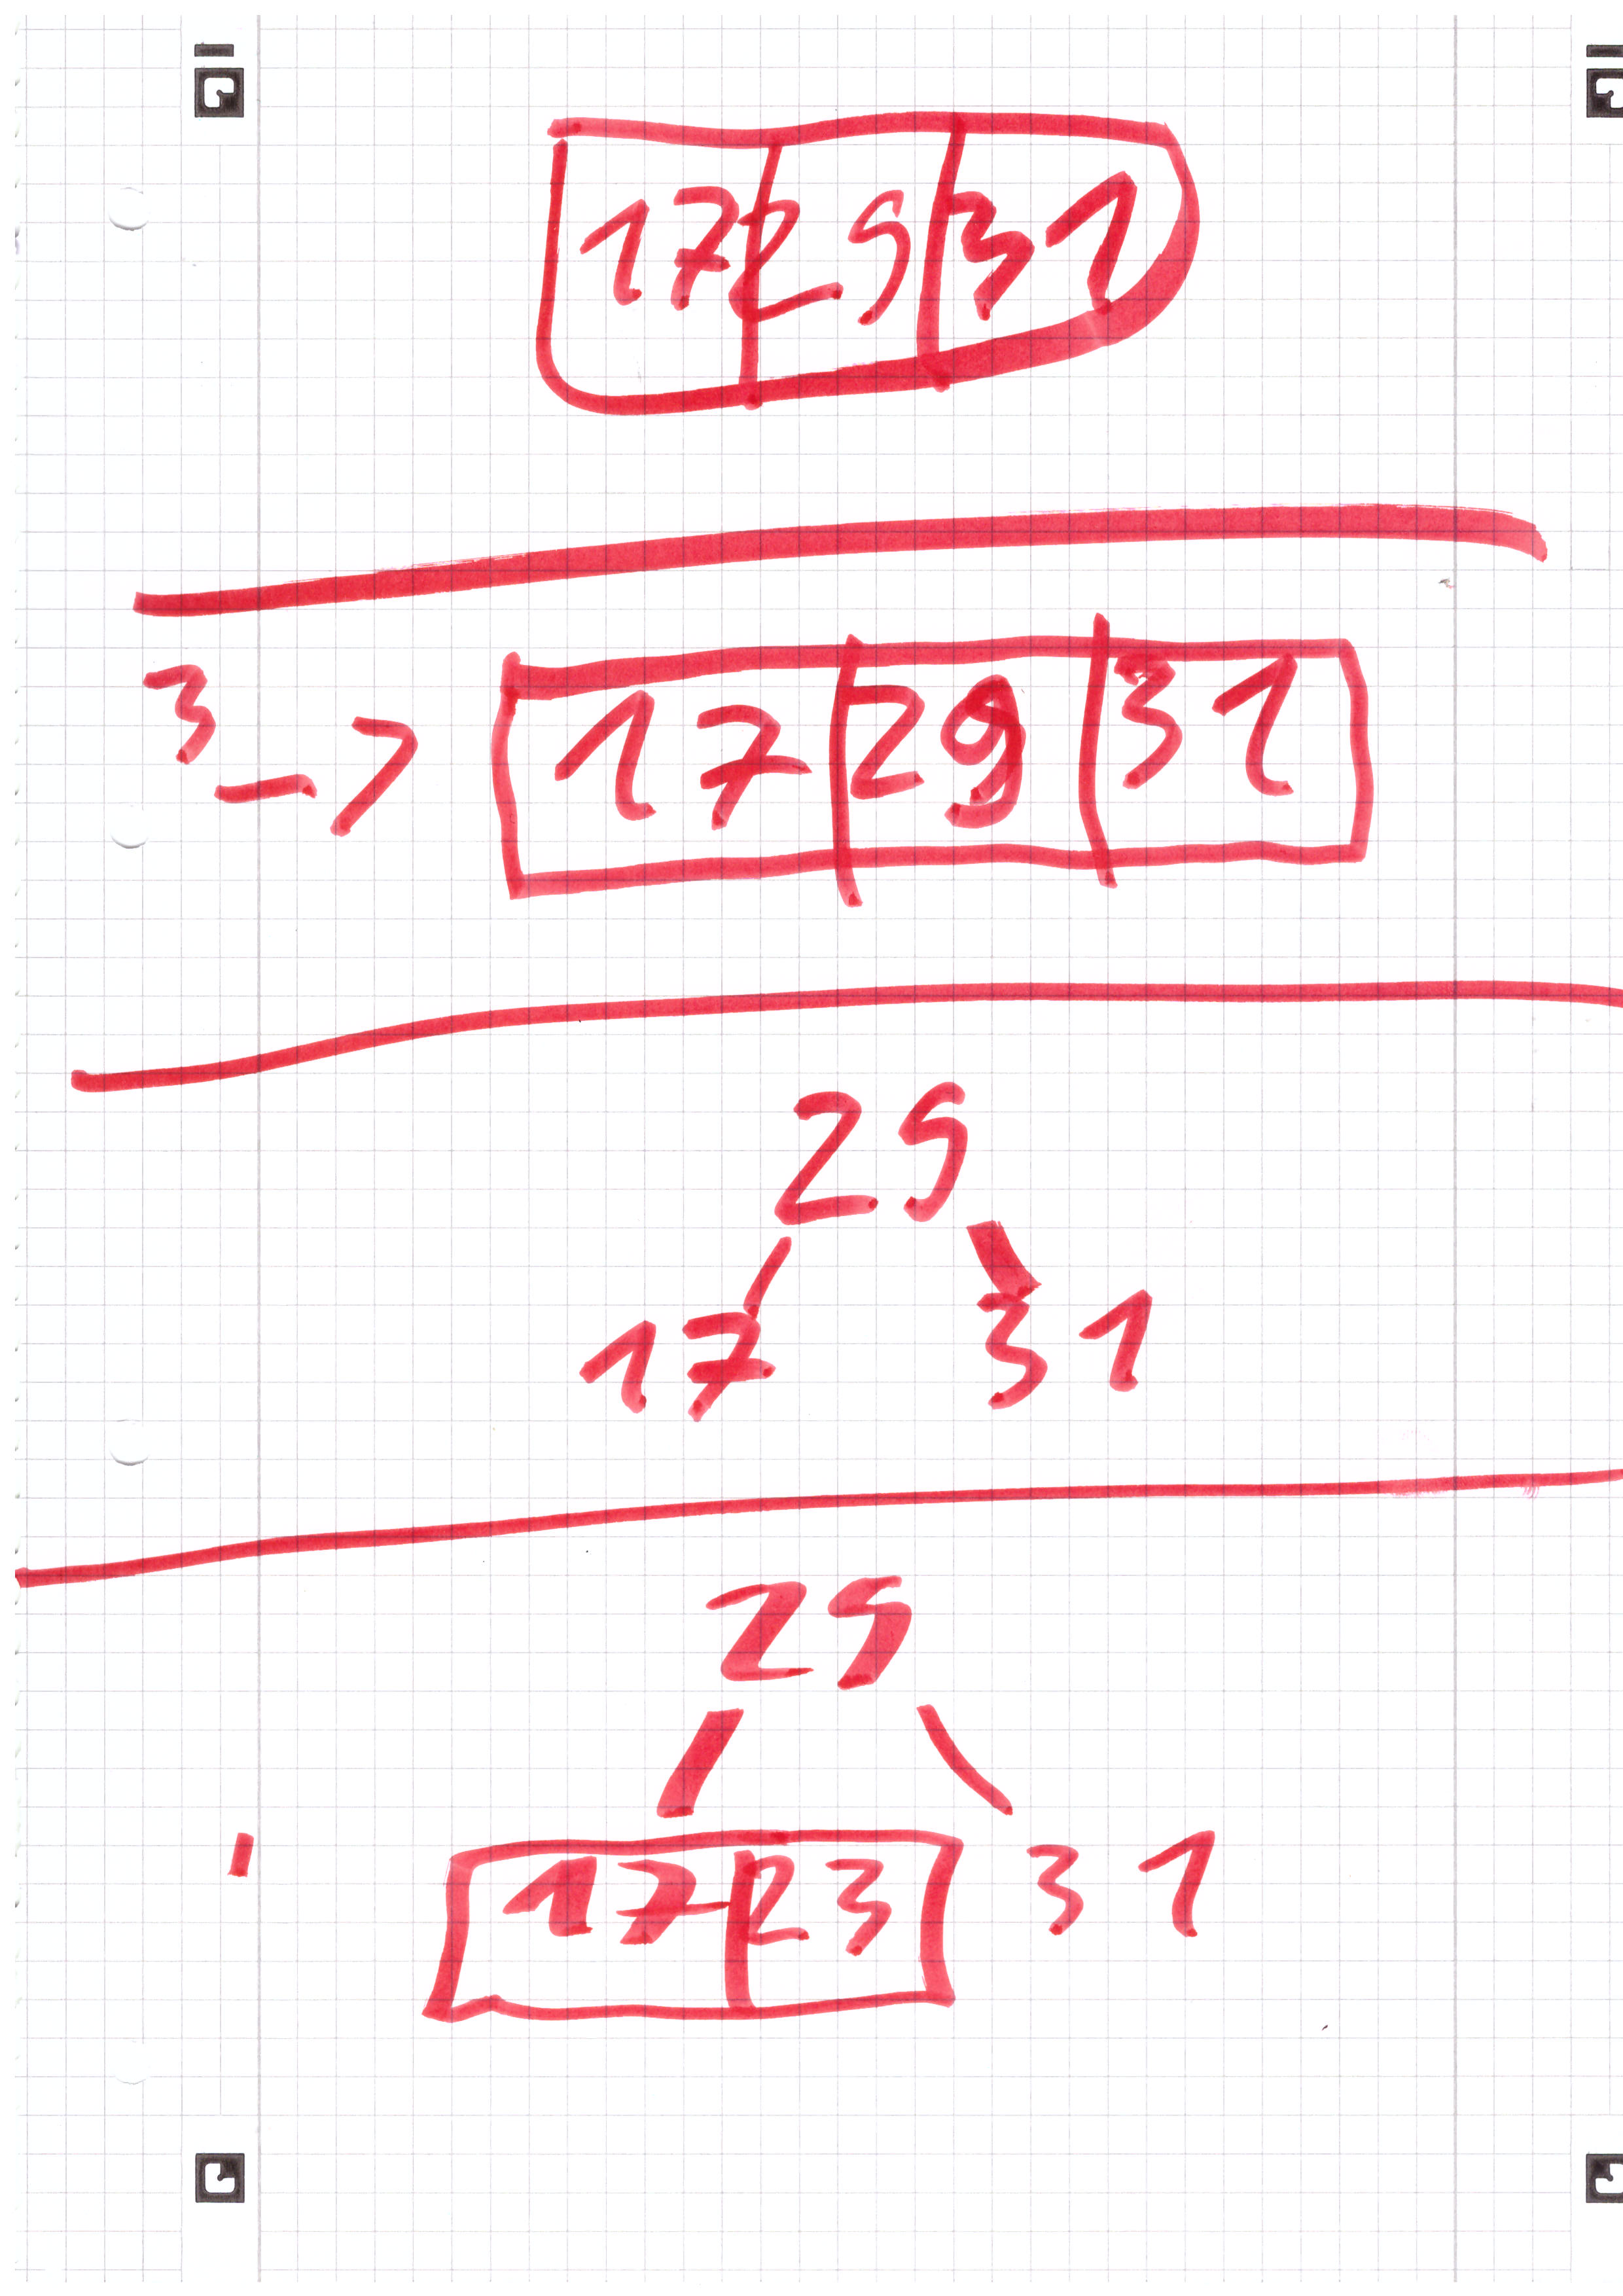 17 29 31
3 -> 17 29 31
29
17 31
29
17 23 31